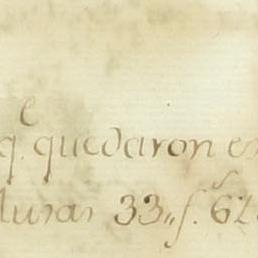 qᵉ quedaron en
duras 33,, f.ˢ 62